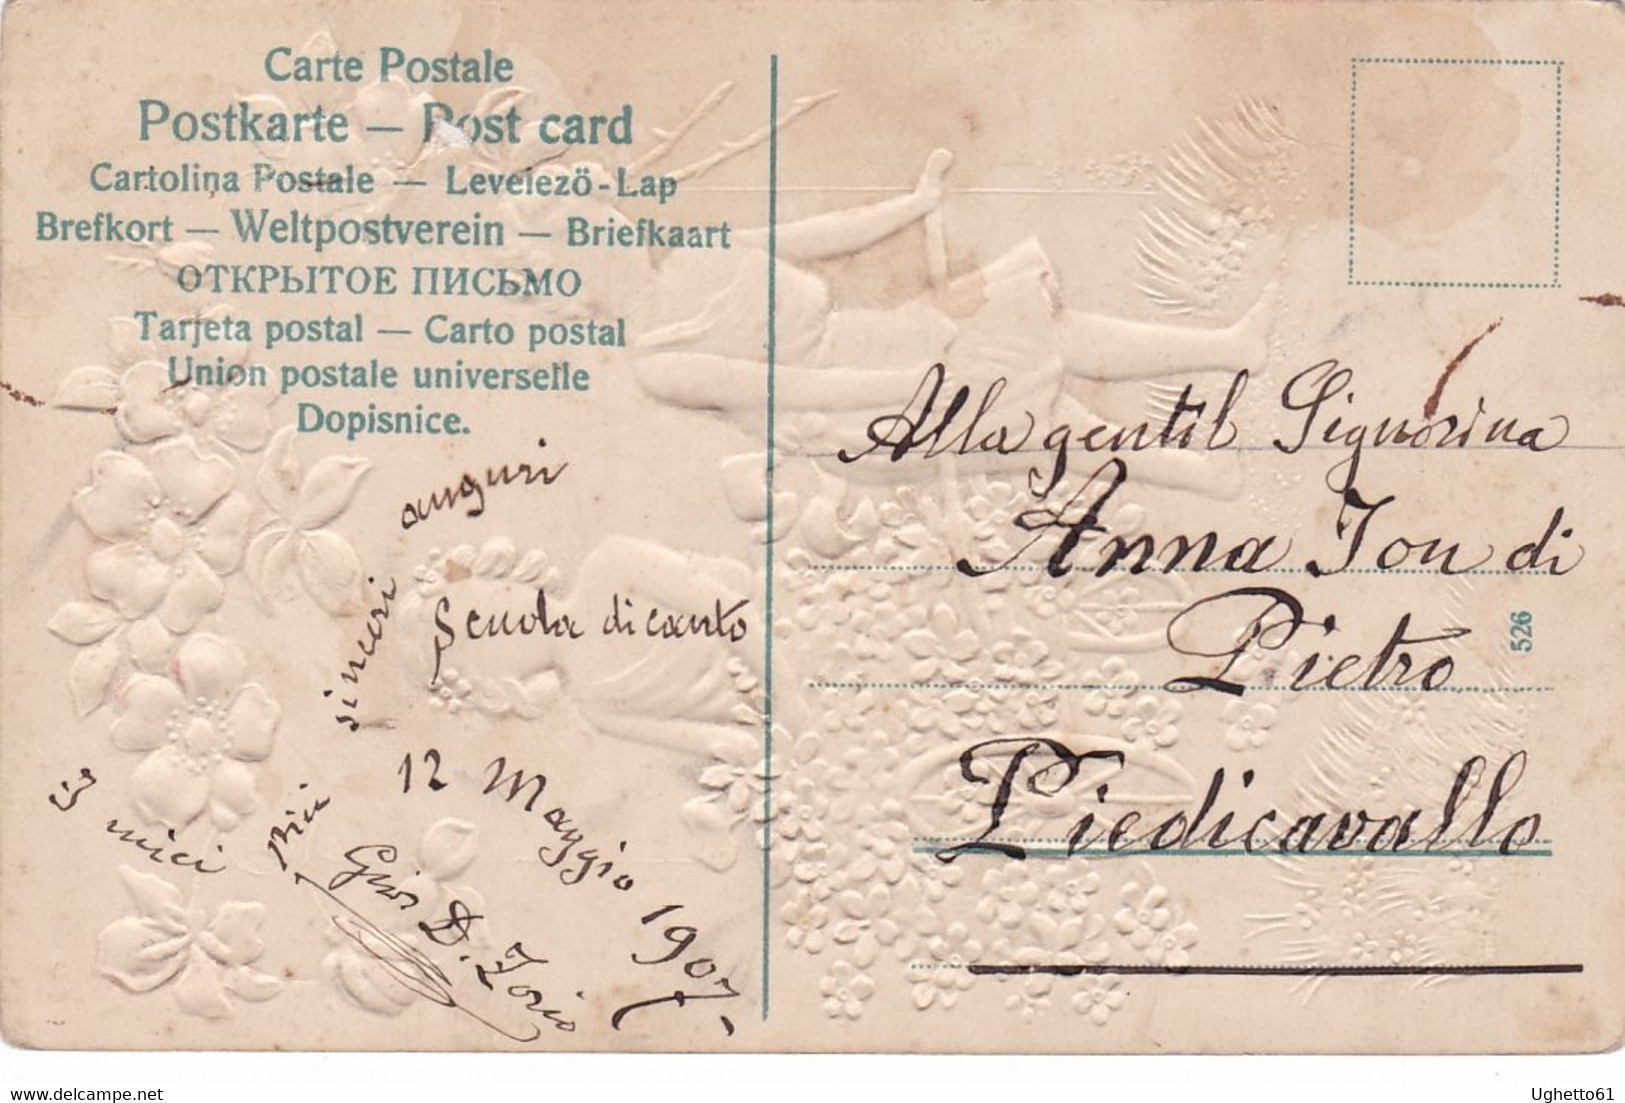 Carte Postale
Postkarte — Post card
Cartolina Postale — Levelező-Lap
Brefkort — Weltpostverein — Briefkaart
ОТКРЫТОЕ ПИСЬМО
Tarjeta postal — Carto postal
Union postale universelle
Dopisnice.
i miei più sinceri auguri
Scuola di canto
12 Maggio 1907-
D. Iorio
Alla gentil Signorina
Anna Jon di
Pietro
Piedicavallo
526
www.delcampe.net
Ughetto61